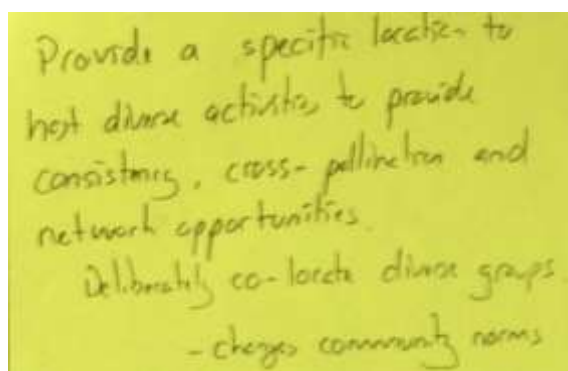 Provide a specific location to
host diverse activities to provide
consistency, cross-pollination and
network opportunities.
Deliberately co-locate diverse groups.
- changes community norms